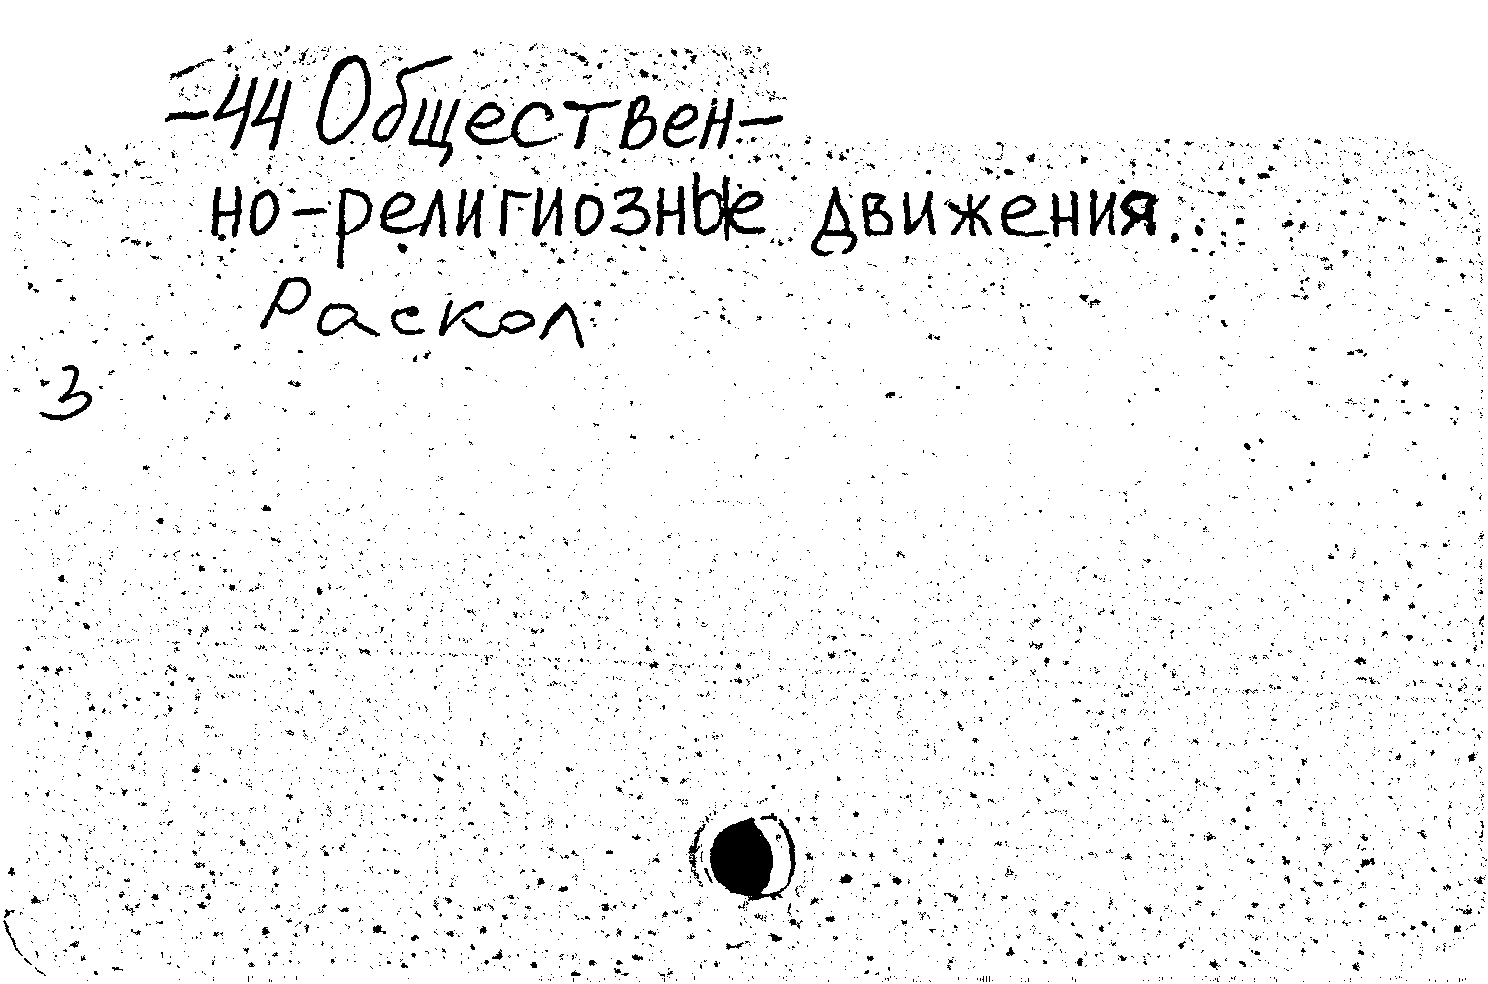 -44 Обществен-
но-религиозные движения.
Раскол
3